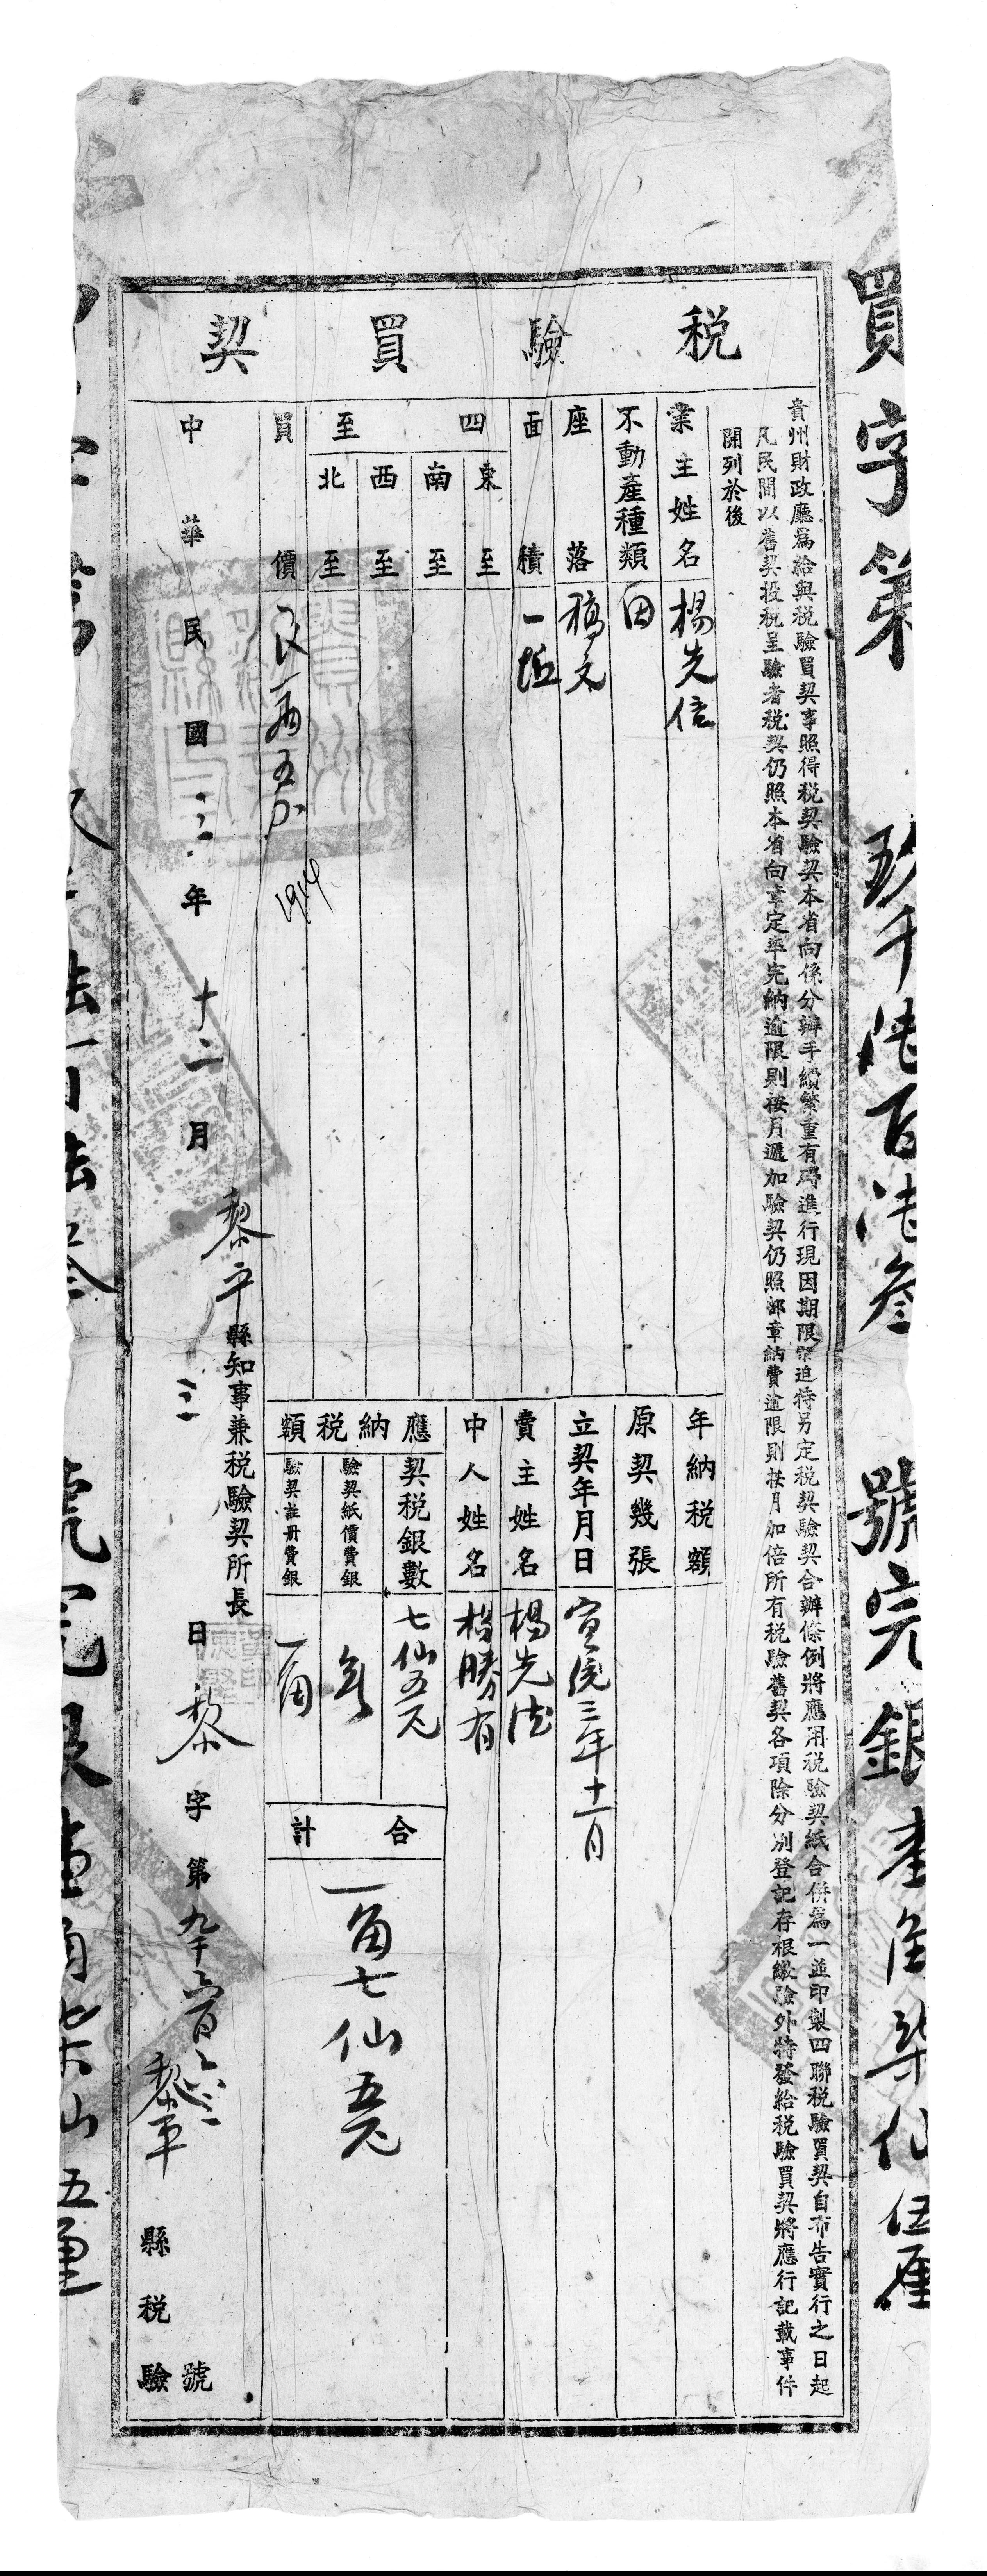 買字第 玖仟陸百陸叁 號完銀壹角柒仙伍厘
税驗買契
貴州財政廳爲給與税驗買契事照得税契驗契本省向係分辦手續繁重有碍進行現因期限緊迫特另定税契驗契合辦條例將應用税驗契紙合併爲一並印製四聯税驗買契自布告實行之日起
凡民間以舊契投税呈驗者税契仍照本省向章定率完納逾限則按月遞加驗契仍照部章納費逾限則按月加倍所有税驗舊契各項除分別登記存根繳驗外特發給税驗買契將應行記載事件
開列於後
業主姓名 楊先信
不動產種類 田
座落 稿文
面積 一坵
四至
東至
南至
西至
北至
買價 艮一兩五分
1914
年納税額
原契幾張
立契年月日 宣統三年十一月
賣主姓名 楊先德
中人姓名 楊勝有
應納税額
契税銀數 七仙五厘
驗契紙價費銀
驗契註冊費銀 一角
合計 一角七仙五厘
黎平縣知事兼税驗契所長
中華民國三年十二月三日黎字第九千六百六三號
黎平縣税驗